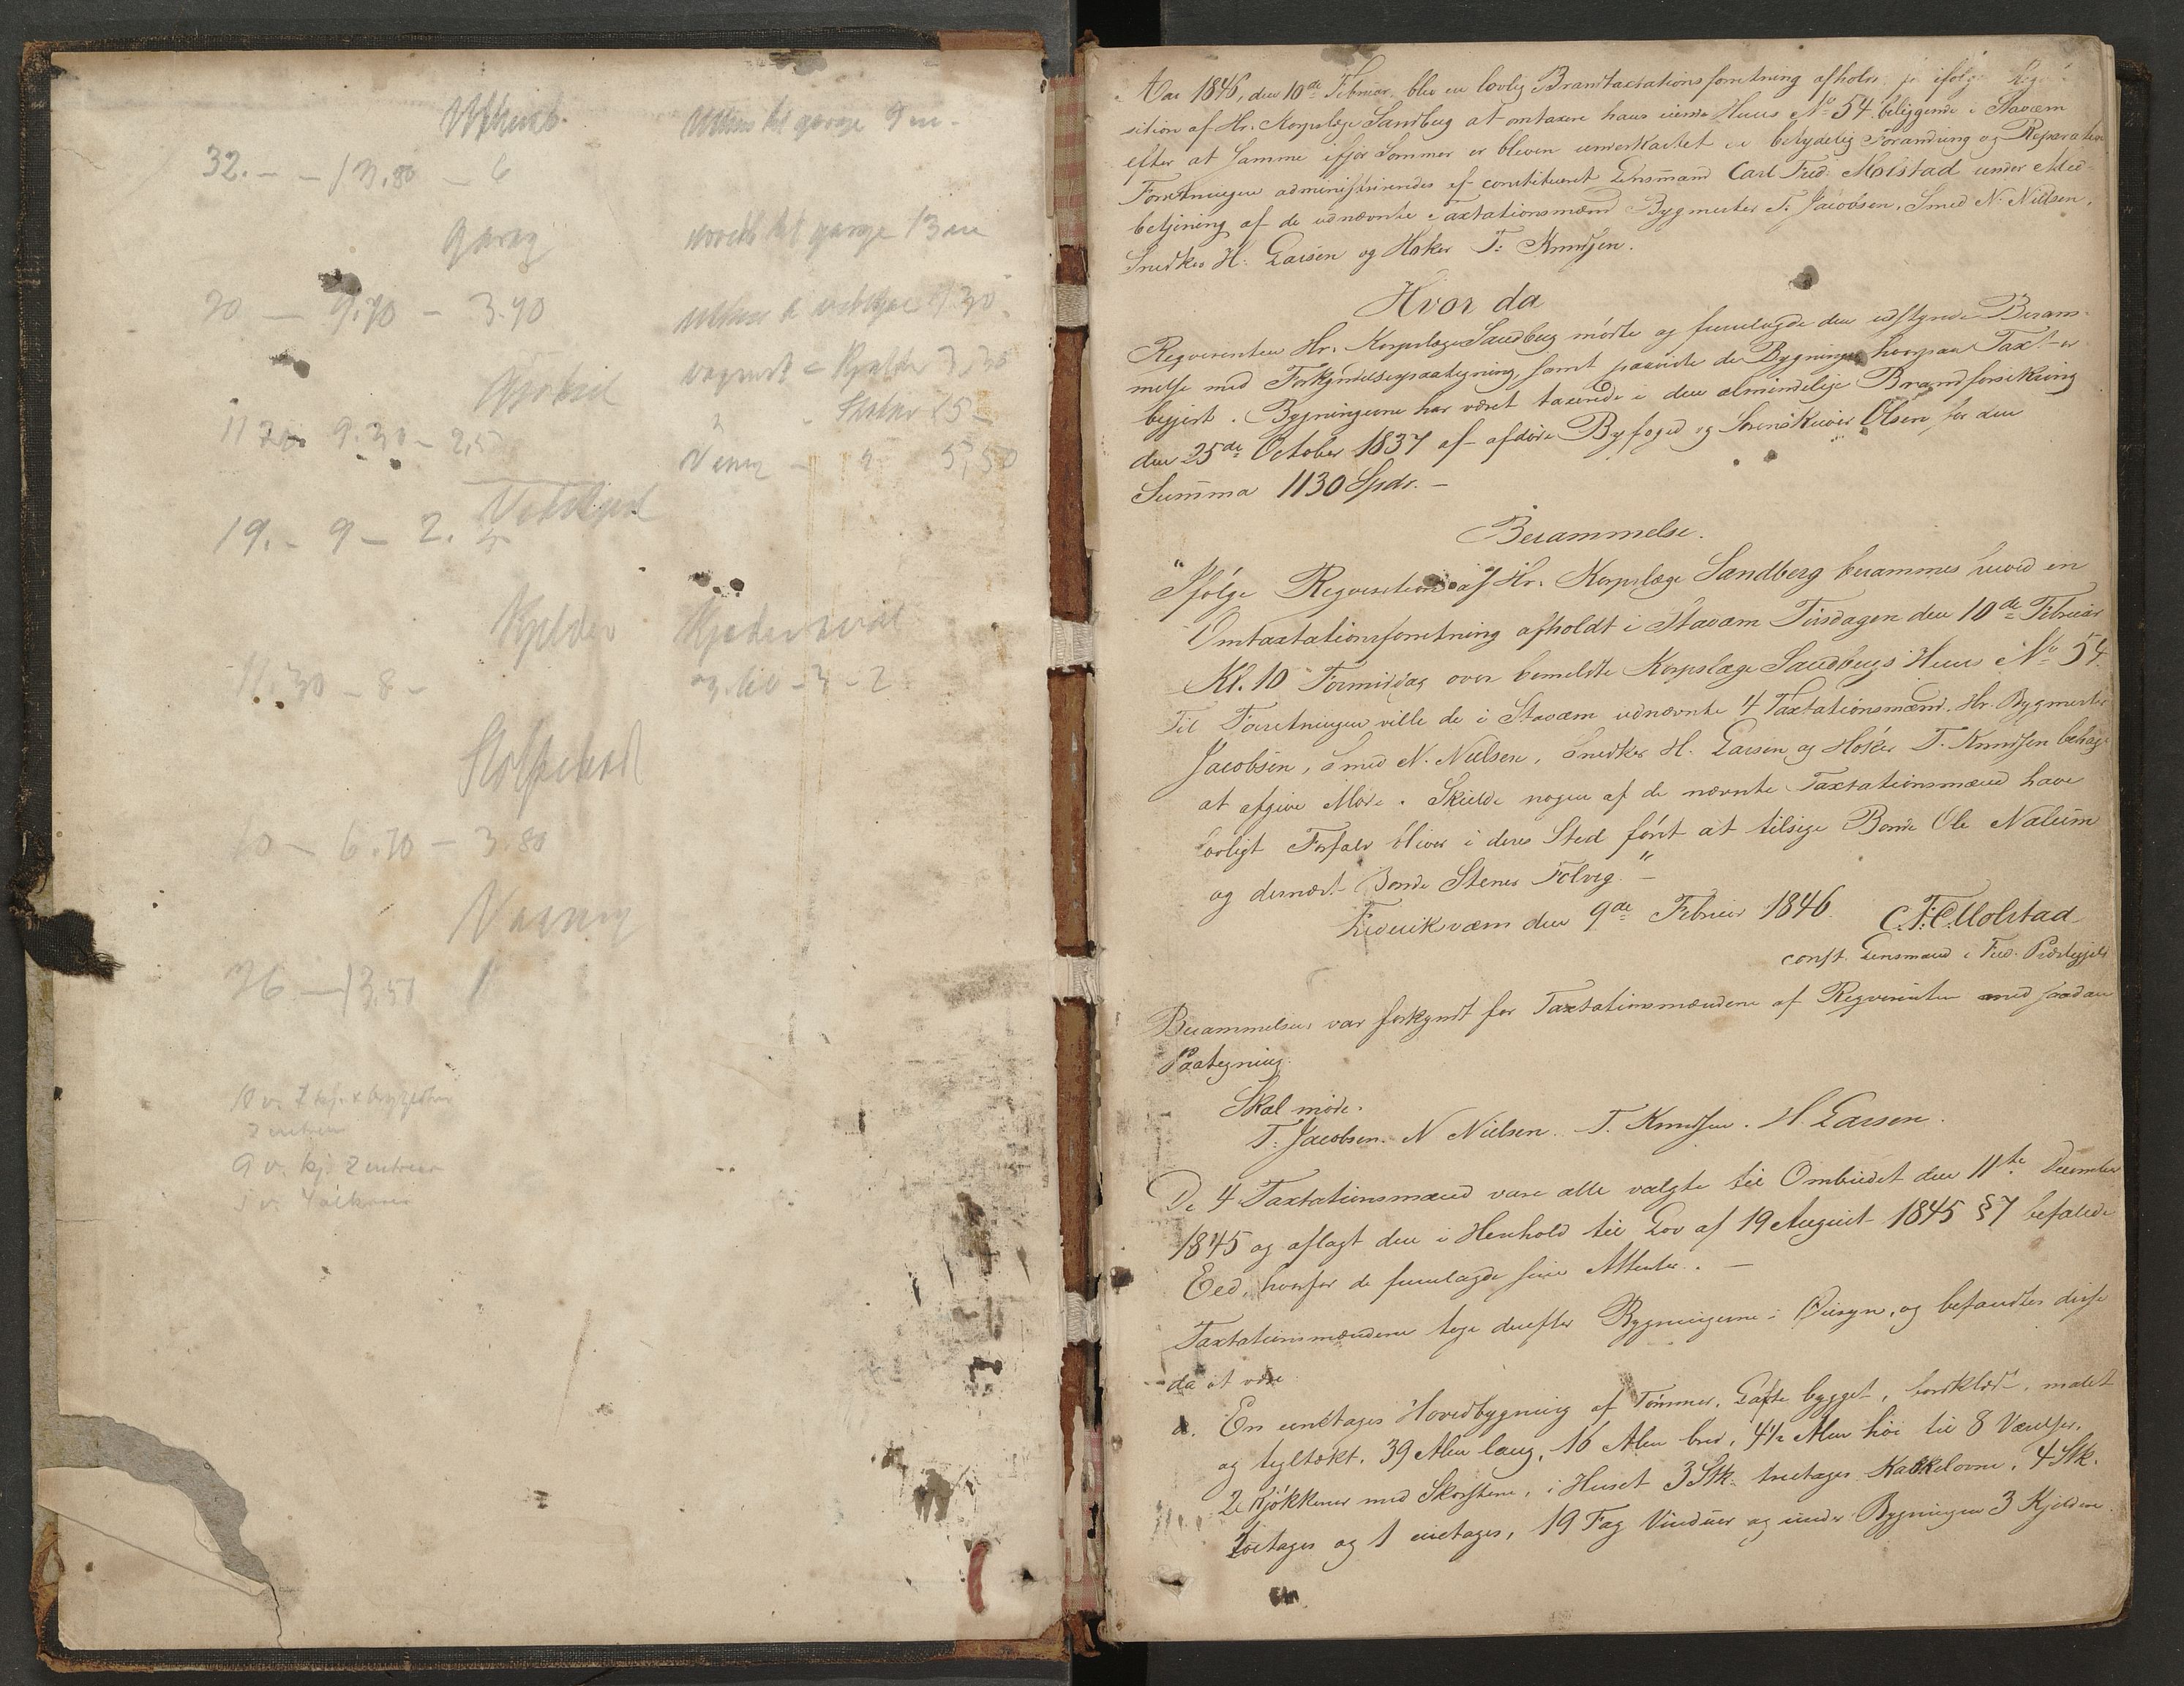 Uthusb.
32. - - 13.80 - 6
garag
20 - 9.70 - 3.40
11 9.30 - 2,5
19. - 9 - 2.
Kjelder
11.30 - 8 -
Stolpebod
10 - 6.70 - 3.80
Vaaning
26 - 13,50
Uthus til garage 9 m -
til garage 13 m
Kjelder
Stolpeb 15 -
5,50
Aar 1846, den 10de Februar, blev en lovlig Brandtaxtationsforretning afholdt
sition af Hr. Korpslæge Sandberg at omtaxere hans eiende Huus No 54 beliggende i Staværn
efter at Samme ifjor Sommer er bleven underkastet en betydelig Forandring og Reparation
Forretningen administreredes af constitueret Lensmand Carl Fred: Molstad under Med-
betjening af de udnævnte Taxtationsmænd Bygmester T. Jacobsen, Smed N. Nielsen,
Snedker H. Larsen og Høker T: Knudsen.
Hvor da
Reqvirenten Hr. Korpslæge Sandberg mødte og fremlagde den udstedte Beram-
melse med Forkyndelsespaategning, samt paaviste de Bygninger hvorpaa Taxt er
begjert. Bygningerne har været taxerede i den almindelige Brandforsikring
den 25de October 1837 af afdøde Byfoged og Sorenskriver Olsen for den
Summa 1130 Spdr. -
Berammelse.
"Ifølge Reqvisition af Hr. Korpslæge Sandberg berammes herved en
Omtaxtationsforretning afholdt i Staværn Tirsdagen den 10de Februar
Kl. 10 Formiddag over bemeldte Korpslæge Sandbergs Huus No 54.
Til Forretningen ville de i Staværn udnævnte 4 Taxtationsmænd, Hr. Bygmester
Jacobsen, Smed N. Nielsen, Snedker H. Larsen og Høker T. Knudsen behage
at afgive Møde. Skulde nogen af de nævnte Taxtationsmænd have
lovligt Forfald bliver i deres Sted først at tilsige Bonde Ole Nalum
og dernæst Bonde Stener Folvig." -
Frederiksværn den 9de Februar 1846. C. F. C. Molstad
const. Lensmand i Fred. Præstegjeld
Berammelsen var forkyndt for Taxtationsmændene af Reqvirenten med saadan
Paategning:
Skal møde.
T. Jacobsen. N Nielsen. T. Knudsen. H. Larsen.
De 4 Taxtationsmænd vare alle valgte til Ombudet den 11te December
1845 og aflagt den i Henhold til Lov af 19 August 1845 §7 befalede
Eed, hvorfor de fremlagde sine Attester. -
Taxtationsmændene toge derefter Bygningerne i Øiesyn, og befandtes disse
da at være
a. En eenetages Hovedbygning af Tømmer, Lafte bygget, bordklædt, malet
og tegltækt, 39 Alen lang, 16 Alen bred, 4½ Alen høi til 8 Værelser,
2 Kjøkkener med Skorstene, i Huset 3 Stk. treetages Kakkelovne, 4 Stk.
toetages og 1 eenetages, 19 Fag Vinduer og under Bygningen 3 Kjeldere.